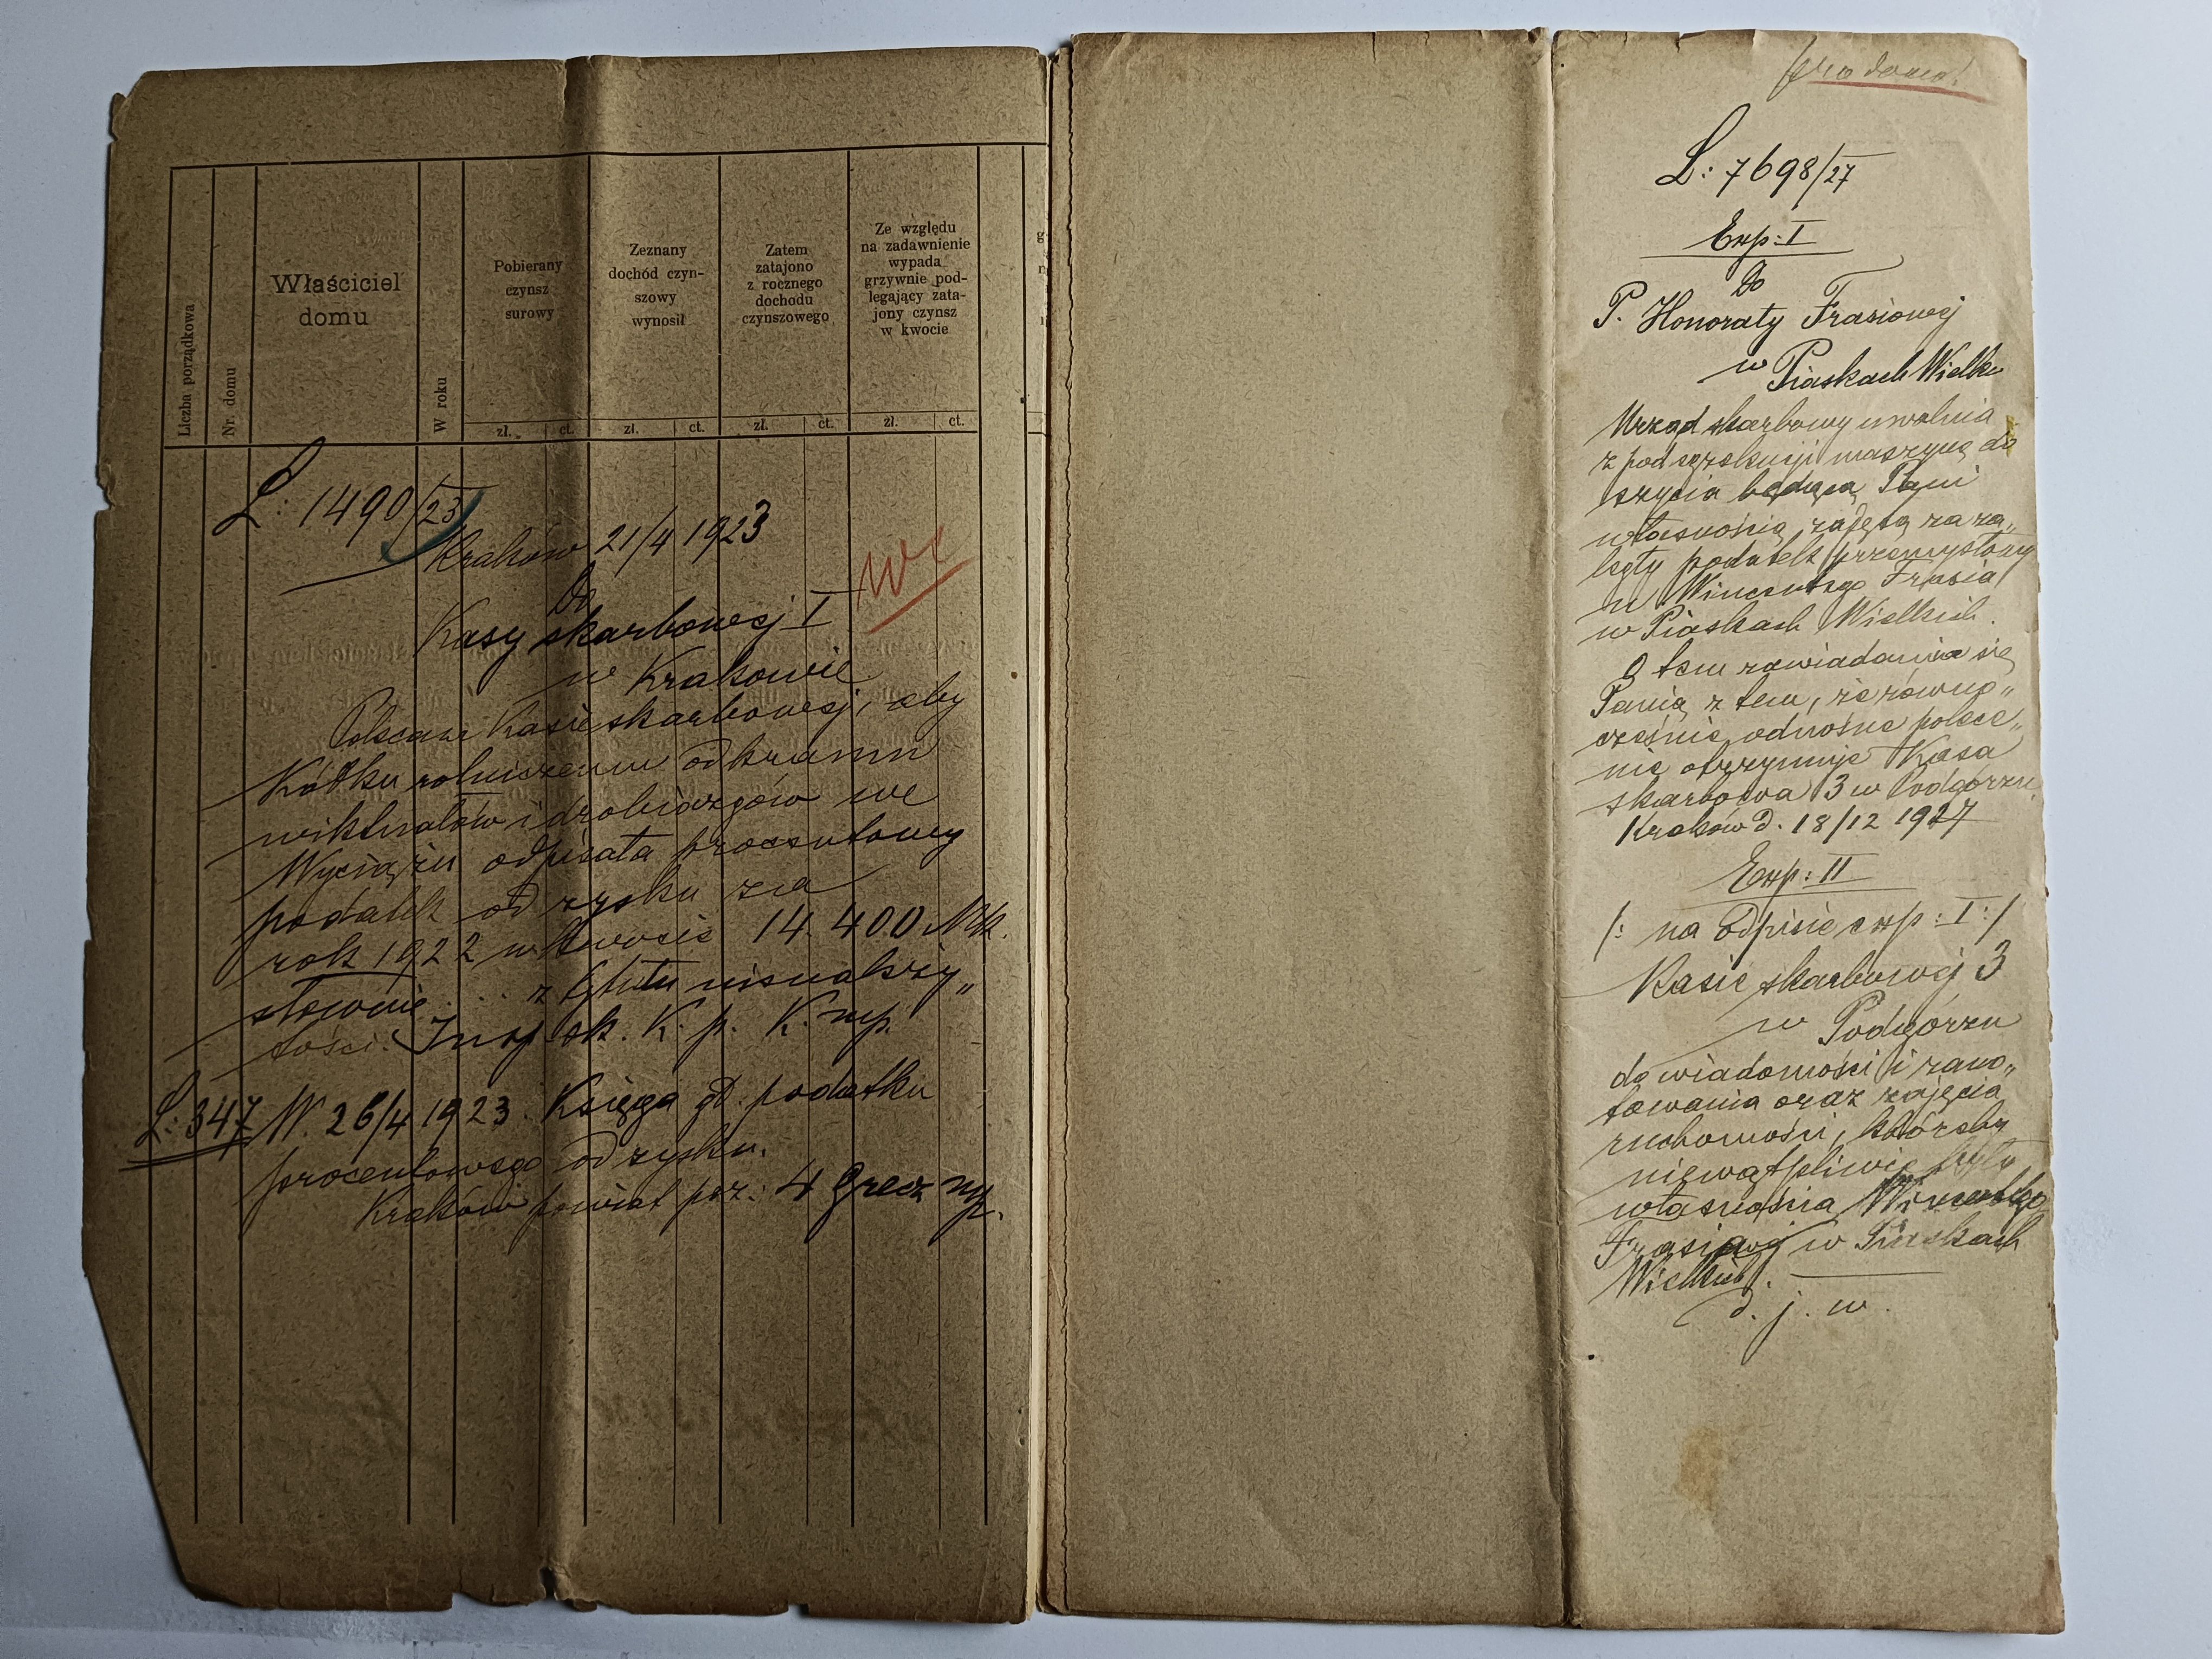 Liczba porządkowa
Nr. domu
Właściciel
domu
W roku
Pobierany
czynsz
surowy
zł. ct.
Zeznany
dochód czyn-
szowy
wynosił
zł. ct.
Zatem
zatajono
z rocznego
dochodu
czynszowego
zł. ct.
Ze względu
na zadawnienie
wypada
grzywnie pod-
legający zata-
jony czynsz
w kwocie
zł. ct.
L: 1490/23
Kraków 21/4 1923
Do
Kasy skarbowej I
w Krakowie
Polecam Kasie skarbowej, aby
Kółku rolniczemu od kramu
wiktuałów i drobiazgów we
Wyciążu odpisała procentowy
podatek od zysku za
rok 1922 w kwocie 14.400 Mk.
słownie . . . z tytułu nienależy„
tości. Insp sk. K. p. K. mp.
L: 347 W. 26/4 1923. Księga gł. podatku
procentowego od zysku.
Kraków powiat poz: 4 Grecz mp.
L: 7698/27
Exp: I
Do
P. Honoraty Frasiowej
w Piaskach Wielk
Urząd skarbowy uwalnia
z pod egzekucji maszynę do
szycia będącą Pani
własnością, zajętą za za„
legły podatek przemysłowy
u Wincentego Frasia
w Piaskach Wielkich.
O tem zawiadamia się
Panią z tem, że równo„
cześnie odnośne polece„
nie otrzymuje Kasa
skarbowa 3 w Podgórzu
Kraków d. 18/12 1927
Exp: II
/: na odpisie exp: I :/
Kasie skarbowej 3
w Podgórzu
do wiadomości i zano„
towania oraz zajęcia
ruchomości, któreby
niewątpliwie były
własnością Wincentego
w Piaskach
Wielkich.
d. j. w.